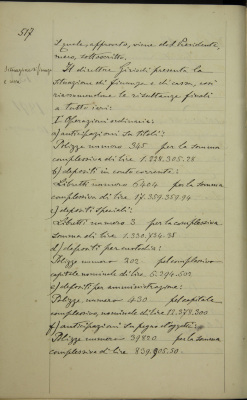 517
il quale, approvato, viene dal Presidente,
meco, sottoscritto.
Il direttore presenta la
situazione di finanza e di cassa, così
riassumendone le risultanze finali
a tutto ieri:
I. Operazioni ordinarie:
a) anticipazioni su titoli:
Polizze numero 345 per la somma
complessiva di lire 1.228.305.28
b) depositi in conto corrente:
Libretti numero 6404 per la somma
complessiva di lire 17.359.359.94
c) depositi speciali:
Libretti numero 3 per la complessiva
somma di lire 1.330.834.35
d) depositi per custodia:
Polizze numero 202 pel complessivo
capitale nominale di lire 6.294.602
e) depositi per amministrazione:
Polizze numero 430 pel capitale
complessivo nominale di lire 12.578.300
f) anticipazioni su pegno d'oggetti:
Polizze numero 39820 per la somma
complessiva di lire 839.905.50